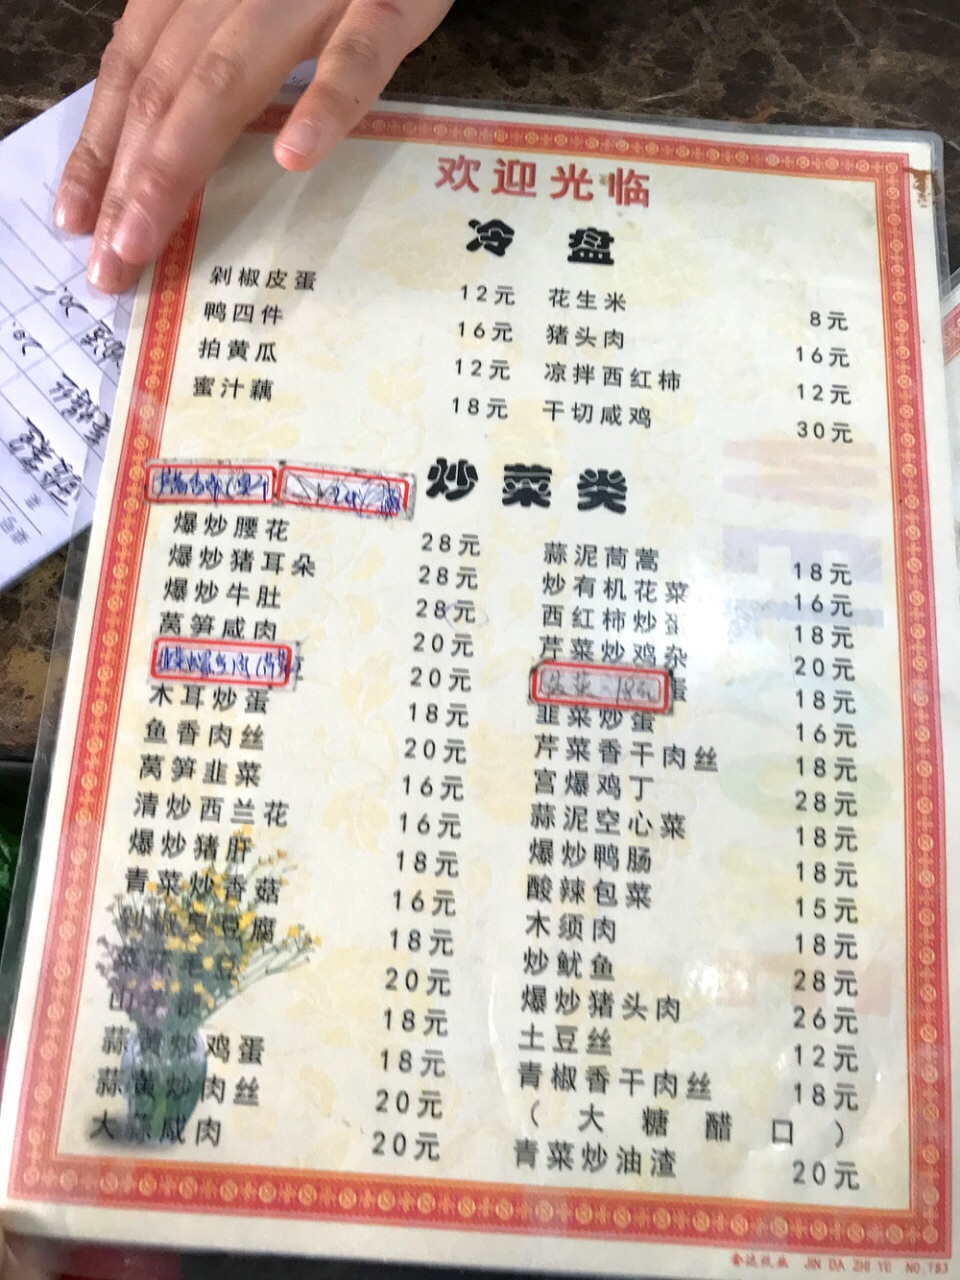 欢迎光临
冷盘
剁椒皮蛋 12元 花生米 8元
鸭四件 16元 猪头肉 16元
拍黄瓜 12元 凉拌西红柿 12元
蜜汁藕 18元 干切咸鸡 30元
炒菜类
爆炒腰花 28元 蒜泥茼蒿 18元
爆炒猪耳朵 28元 炒有机花菜 16元
爆炒牛肚 28元 西红柿炒蛋 18元
莴笋咸肉 20元 芹菜炒鸡杂 20元
20元 蛋 18元
木耳炒蛋 18元 韭菜炒蛋 16元
鱼香肉丝 20元 芹菜香干肉丝 18元
莴笋韭菜 16元 宫爆鸡丁 28元
清炒西兰花 16元 蒜泥空心菜 18元
爆炒猪肝 18元 爆炒鸭肠 18元
青菜炒香菇 16元 酸辣包菜 15元
剁椒臭豆腐 18元 木须肉 18元
20元 炒鱿鱼 28元
山 18元 爆炒猪头肉 26元
蒜黄炒鸡蛋 18元 土豆丝 12元
蒜黄炒肉丝 20元 青椒香干肉丝 18元
大蒜咸肉 20元 （大糖醋口）
青菜炒油渣 20元
JIN DA ZHI YE NO.T83